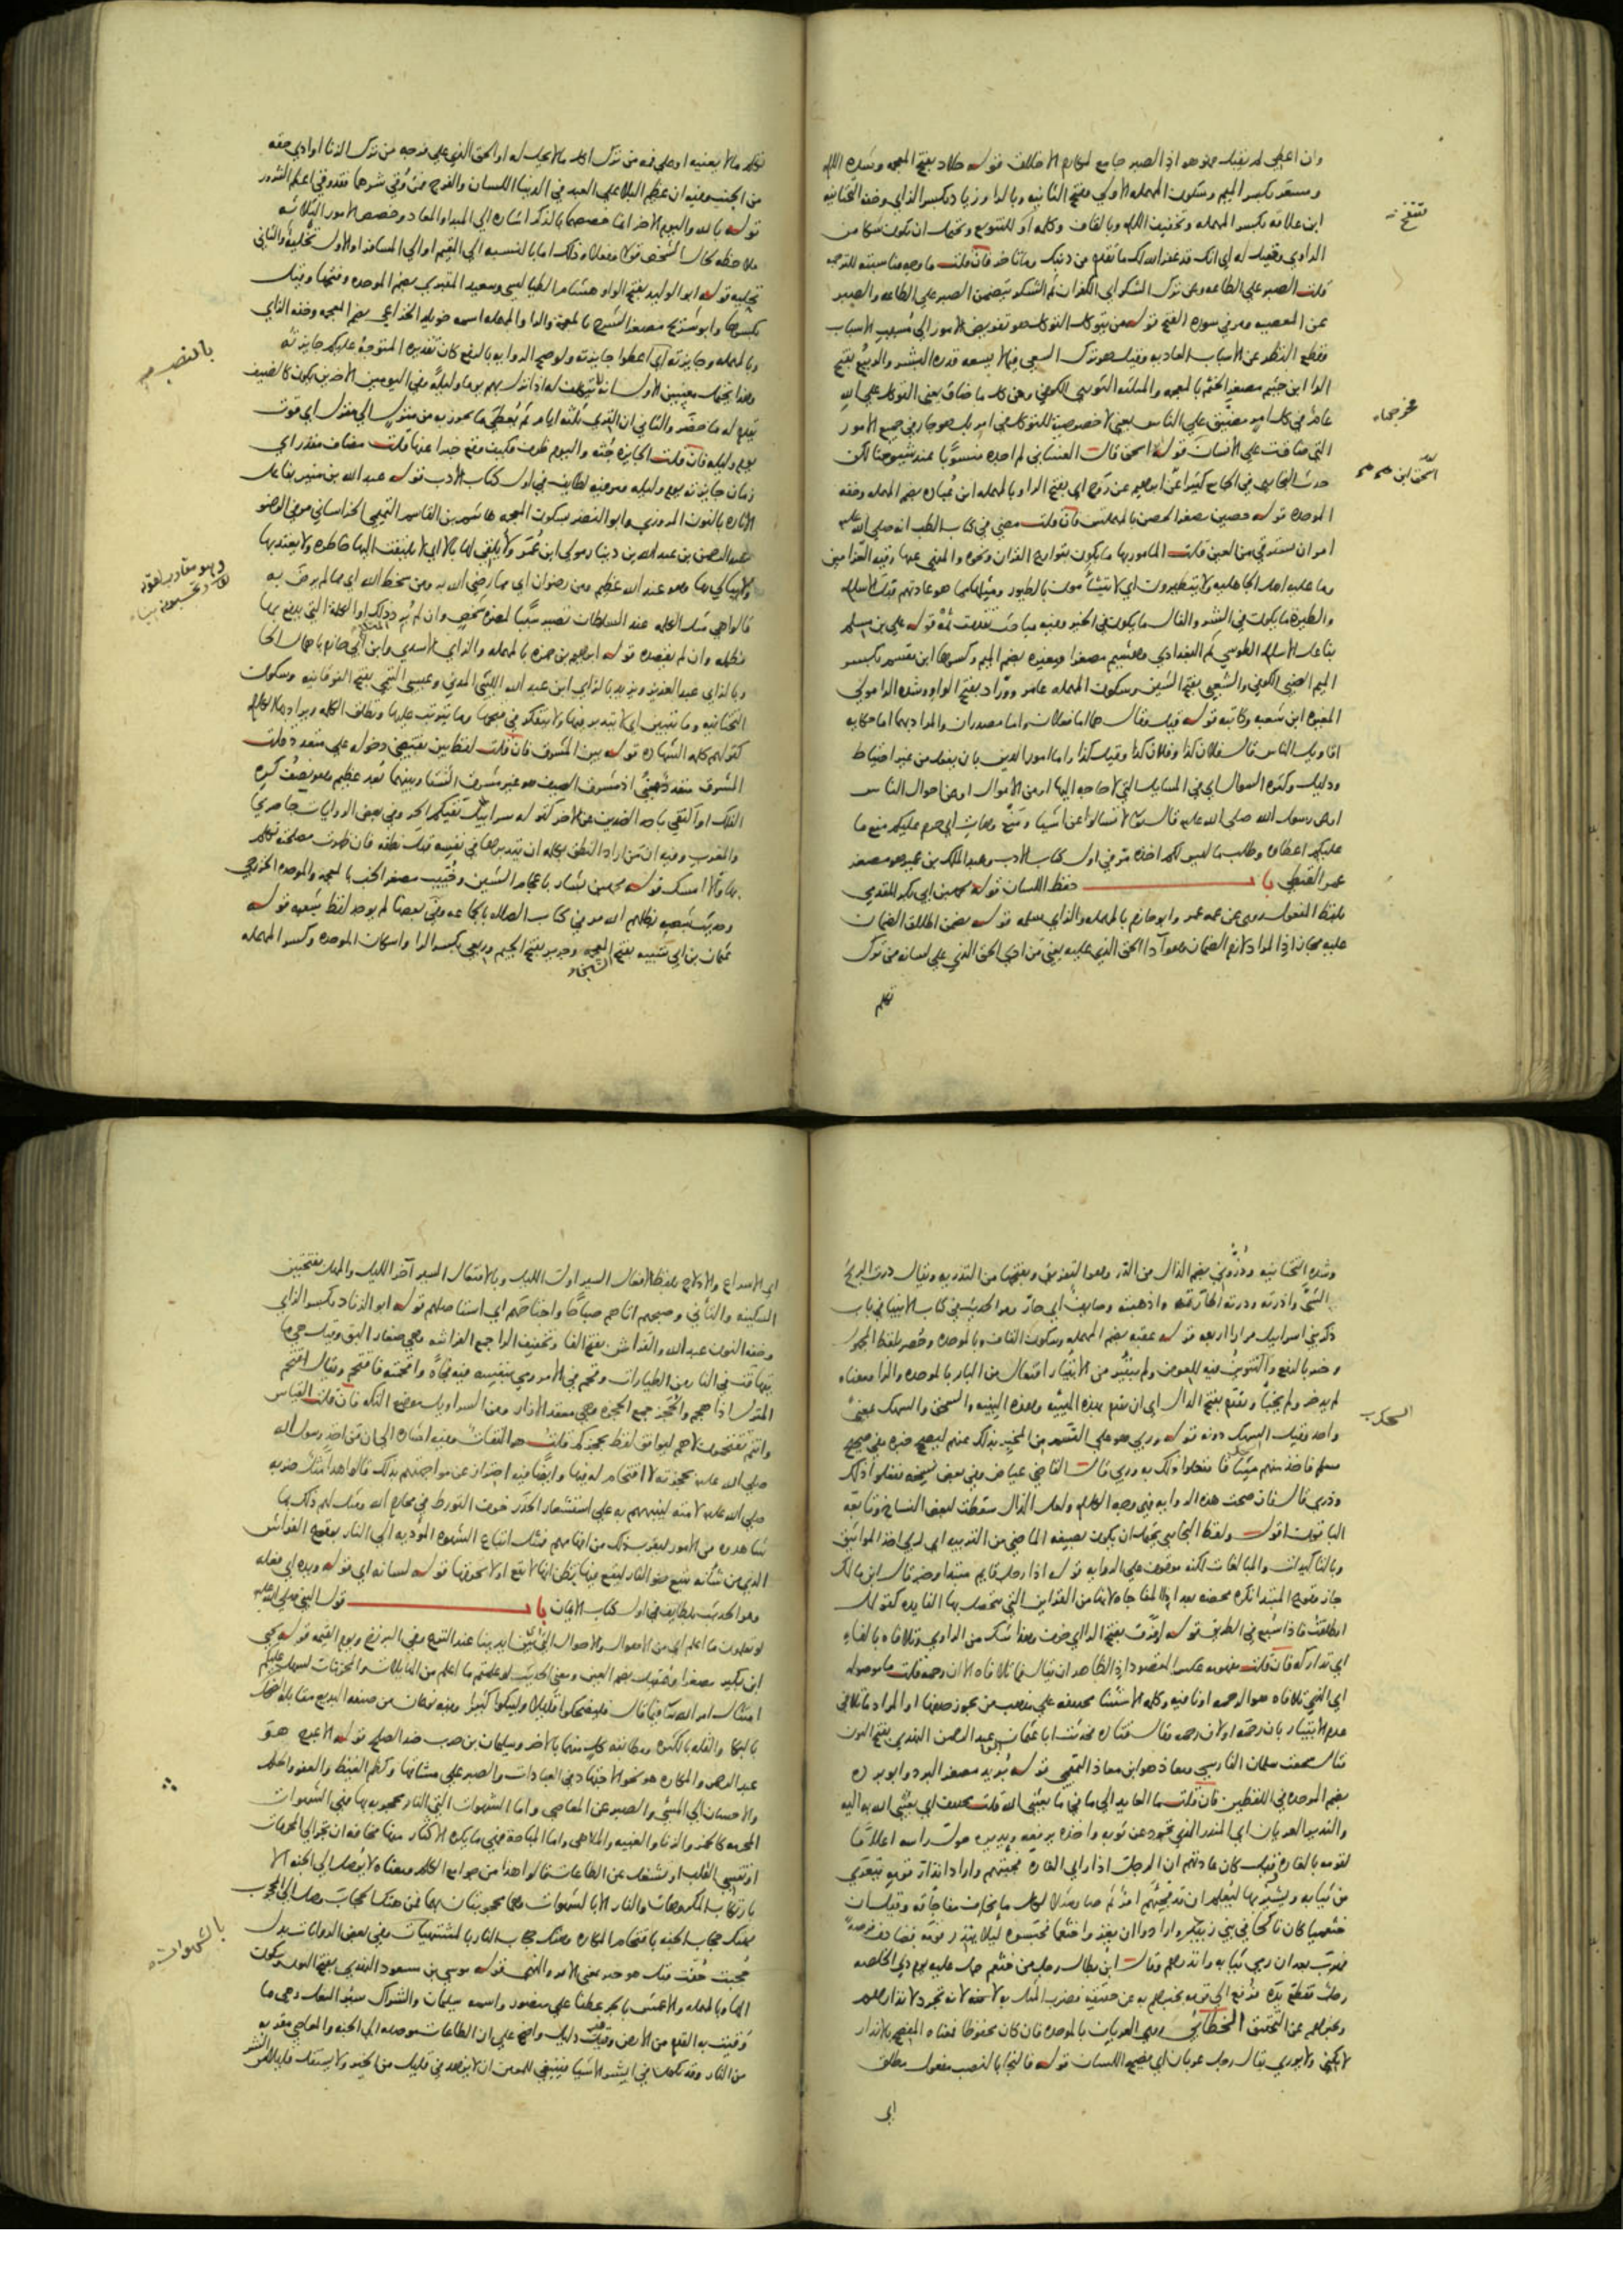 وان اعطى لم يقبل فهو هو اذ الصبر جامع لمكارم الاخلاق قوله خلاد بفتح المعجمة وشدة اللام
ومسعر بكسر الميم وسكون المهملة الاولى وفتح الثانية وبالراء وزياد بكسر الزاي وخفة التحتانية
ابن علاقة بكسر المهملة وتخفيف اللام وبالقاف وكلمة او للتنويع ويحتمل ان يكون شكا من
الراوي وقيل له اي انك قد غفر الله لك ما تقدم من ذنبك وما تاخر فان قلت ما وجه مناسبته للترجمة
قلت الصبر على الطاعة وعن ترك الشكر اي الكفران ثم الشكر يتضمن الصبر على الطاعة والصبر
عن المعصية ومر في سورة الفتح قوله من يتوكل التوكل هو تفويض الامور الى مسبب الاسباب
وقطع النظر عن الاسباب العادية وقيل هو ترك السعي فيما لا يسعه قدرة البشر والربيع بفتح
الراء ابن خثيم مصغر الخثم بالمعجمة والمثلثة الثوري الكوفي ومن كل ما ضاق يعني التوكل على الله
عام في كل امر مضيق على الناس يعني لا خصوصية للتوكل في امر بل هو جار في جميع الامور
التي ضاقت على الانسان قوله اسحق قال الغساني لم اجده منسوبا عند شيوخنا لكن
حدث البخاري في الجامع كثيرا عن ابرهيم عن روح اي بفتح الراء وبالمهملة ابن عبادة بضم المهملة وخفة
الموحدة قوله حصين مصغر الحصن بالمهملتين فان قلت مضى في كتاب الطب انه صلى الله عليه
امر ان يسترقى من العين قلت المامور بها ما يكون بقوارع القران ونحوه والمنهي عنها رقية العزامين
وما عليه اهل الجاهلية ولا يتطيرون اي لا يتشاءمون بالطيور ومثلها مما هو عادتهم قبل الاسلام
والطيرة ما يكون في الشر والفال ما يكون في الخير وفيه مباحث تقدمت ثمة قوله علي بن مسلم
بتاعل الاسلام الطوسي ثم البغدادي وهشيم مصغرا ومغيرة بضم الميم وكسرها ابن مقسم بكسر
الميم الضبي الكوفي والشعبي بفتح الشين وسكون المهملة عامر ووراد بفتح الواو وشدة الراء مولى
المغيرة ابن شعبة وكاتبه قوله قيل وقال هما اما فعلان واما مصدران والمراد بهما اما حكاية
اقاويل الناس قال فلان كذا وفلان كذا وقيل كذا واما امور الدين بان ينقل من غير احتياط
ودليل وكثرة السوال اي في المسائل التي لا حاجة اليها او من الاموال او عن احوال الناس
عليكم اعطاه وطلب ما ليس لكم اخذه مر في اول كتاب الادب وعبد الملك بن عمير هو مصغر
عمر القبطي باب حفظ اللسان قوله محمد بن ابي بكر المقدمي
بلفظ المفعول روى عن عمه عمر وابو حازم بالمهملة والزاي سلمة قوله يضمن اطلاق الضمان
عليه مجاز اذ المراد لازم الضمان وهو اداء الحق الذي عليه يعني من ادى الحق الذي على لسانه من ترك
تكلم
تنقيح
مخرجا
اسحق ابن
تكلم ما لا يعنيه او على فمه من ترك اكل ما لا يحل له او الحق الذي على فرجه من ترك الزنا او ادى حقه
من الجنة وفيه ان عظم البلاء على العبد في الدنيا اللسان والفرج فمن وقي شرهما فقد وقي اعظم الشرور
قوله بالله واليوم الاخر انما خصصهما بالذكر اشارة الى المبدا والمعاد وخصص الامور الثلاثة
ملاحظة لحال الشخص قولا وفعلا وذلك اما بالنسبة الى المقيم او الى المسافر او الاول تخلية والثاني
تحلية قوله ابو الوليد بفتح الواو هشام الطيالسي وسعيد المقبري بضم الموحدة وفتحها وقيل
بكسرها وابو شريح مصغر الشرح بالمعجمة والراء والمهملة اسمه خويلد الخزاعي بضم المعجمة وخفة الزاي
وبالمهملة وجايزته اي اعطوا جايزته ولو صح الرواية بالرفع كان تقديره المتوجه عليكم جايزته
يوم وليلة فان قلت الجايزة جثة واليوم ظرف فكيف وقع خبرا عنها قلت مضاف مقدر اي
زمان جايزته يوم وليلة ومر فيه لطايف في اول كتاب الادب قوله عبد الله بن منير بفاعل
الانارة بالنون المروزي وابو النضر بسكون المعجمة هاشم بن القاسم التميمي الخراساني مر في الوضوء
وعبد الرحمن بن عبد الله بن دينار مولى ابن عمر ولا يلقي لها بالا اي لا يلتفت اليها خاطره ولا يعتد بها
ولا يبالي بها وهو عند الله عظيم ومن رضوان اي مما رضي الله به ومن سخط الله اي مما لم يرض به
تظلمه وان لم يقصده قوله ابرهيم بن حمزة بالمهملة والزاي الاسدي وابن ابي حازم باهمال الحاء
وبالزاي عبد العزيز ويزيد بالزاي ابن عبد الله الليثي المدني وعيسى التيمي بفتح الفوقانية وسكون
التحتانية وما يتبين اي لا يتدبر فيها ولا يتفكر في قبحها وما يترتب عليها وتطلق الكلمة ويراد بها الكلام
كقولهم كلمة الشهادة قوله بين المشرق فان قلت لفظ بين تقتضي دخوله على متعدد قلت
المشرق متعدد معنى اذ مشرق الصيف هو غير مشرق الشتاء وبينهما بعد عظيم وهو نصف كرة
الفلك او اكتفي باحد الضدين عن الاخر كقوله سرابيل تقيكم الحر وفي بعض الروايات جاء صريحا
والمغرب وفيه ان من اراد النطق بكلمة ان يتدبرها في نفسه قبل نطقه فان ظهرت مصلحة تكلم
بها والا امسك قوله محمد بن بشار باعجام الشين وخبيب مصغر الخب بالمعجمة والموحدة الخزرجي
وحديث سبعة يظلهم الله مر في كتاب الصلاة بالجماعة وفي بعضها لم يوجد لفظ سبعة قوله
عثمان بن ابي شيبة بفتح المعجمة وجرير بفتح الجيم وربعي بكسر الراء واسكان الموحدة وكسر المهملة
بالنصب
وشدة التحتانية وذروني بضم الذال من الذر وهو التفريق وبفتحها من التذرية ويقال ذرت الريح
الشيء واذرته وذرته اطارته واذهبته وصايف اي حار ومر الحديث في كتاب الانبياء في باب
ذكر بني اسرائيل مرارا اربعة قوله عقبة بضم المهملة وسكون القاف وبالموحدة وحضر بلفظ المجهول
لم يدخر ولم يخبا ويقدم بفتح الدال اي ان يقدم بهذه الهيئة وهذه البنية والسحق والسهك بمعنى
واحد وقيل السهك دونه قوله وربي هو على القسم من المخبر بذلك عنهم ليصح خبره وفي صحيح
مسلم فاخذ منهم ميثاقا ففعلوا ذلك به وربي قال القاضي عياض وفي بعض نسخه ففعلوا ذلك
وذري قال فان صحت هذه الرواية فهي وجه الكلام ولعل الذال سقطت لبعض النساخ وتابعه
الباقون اقول ولفظ البخاري يحتمل ان يكون بصيغة الماضي من التربية اي ربى اخذ المواثيق
وبالتاكيدات والمبالغات لكنه موقوف على الرواية قوله اذا رجل قايم مبتدا وخبر قال ابن مالك
جاز وقوع المبتدا نكرة محضة بعد اذا المفاجاة لانها من القراين التي يتحصل بها الفايدة كقولك
انطلقت فاذا سبع في الطريق قوله او فرق بفتح الراء اي خوف وهذا شك من الراوي وتلافاه بالفاء
اي تداركه فان قلت مفهومه عكس المقصود اذ الظاهر ان يقال فما تلافاه الا ان رحمه قلت ما موصولة
اي الذي تلافاه هو الرحمة او نافية وكلمة الاستثناء محذوفة على مذهب من يجوز حذفها او المراد ما تلافى
عدم الابتيار بان رحمه او لان رحمه وقال قتادة فحدثت ابا عثمان عبد الرحمن النهدي بفتح النون
فقال سمعت سلمان الفارسي ومعاذ هو ابن معاذ التميمي قوله بريد مصغر البرد وابو بردة
بضم الموحدة في اللفظين فان قلت ما العايد الى ما في ما بعثني الله قلت محذوف اي بعثني الله به اليه
والنذير العريان اي المنذر الذي تجرد عن ثوبه واخذه يرفعه ويديره حول راسه اعلاما
لقومه بالغارة وكان عادتهم ان الرجل اذا راى الغارة فجئتهم واراد انذار قومه يتعرى
من ثيابه ويشير بها ليعلم ان قد فجئهم امر ثم صار مثلا لكل ما يخاف مفاجاته وقيل ان
فهرب بعد ان رمى ثيابه وانذرهم وقال ابن بطال رجل من خثعم حمل عليه يوم ذي الخلصة
رجل فقطع يده فرجع الى قومه يخبرهم به عن حقيقة فضرب المثل به لامته لانه تجرد لانذارهم
وتخبرهم عن التحقيق الخطابي روي العربان بالموحدة فان كان محفوظا فمعناه المفصح بالانذار
لا يكني ولا يوري يقال رجل عربان اي فصيح اللسان قوله فالنجا بالنصب مفعول مطلق
اي
اي الاسراع والادلاج بلفظ الافعال السير اول الليل وبالافتعال السير آخر الليل والمهل بفتحتين
السكينة والتاني وصبحهم اتاهم صباحا واجتاحهم اي استاصلهم قوله ابو الزناد بكسر الزاي
وخفة النون عبد الله والفراش بفتح الفاء وتخفيف الراء جمع الفراشة وهي صغار البق وقيل هي ما
يتهافت في النار من الطيارات وقحم في الامر رمى بنفسه فيه فجاة واقحمته فاقتحم ويقال اقتحم
المنزل اذا هجم والحجز جمع الحجزة وهي معقد الازار ومن السراويل موضع التكة فان قلت القياس
صلى الله عليه بحجزته لا اقتحام له فيها وايضا فيه احتراز عن مواجهتهم بذلك قالوا هذا مثل ضربه
صلى الله عليه لامته لينبههم به على استشعار الحذر خوف التورط في محارم الله ومثل لهم ذلك بما
شاهدوه من الامور ليقرب ذلك من افهامهم فمثل اتباع الشهوة المؤدية الى النار بوقوع الفراش
الذي من شانه تتبع ضوء النار ليقع فيها يظن انها لا تقع او لا تحرقها قوله لسانه اي قوله ويده اي فعله
وهو الحديث بلطايفه في اول كتاب الايمان باب قول النبي صلى الله عليه
لو تعلمون ما اعلم اي من الاهوال والاحوال التي بين ايدينا عند النزع وفي البرزخ ويوم القيمة قوله يحيى
بالبكاء والقلة بالكثرة ومطابقة كل منهما بالاخر وسليمان بن حرب ضد الصلح قوله الاعرج هو
عبد الرحمن والمكاره هو نحو الاجتهاد في العبادات والصبر على مشاقها وكظم الغيظ والعفو والحلم
والاحسان الى المسيء والصبر عن المعاصي واما الشهوات التي النار محجوبة بها فهي الشهوات
المحرمة كالخمر والزنا والغيبة والملاهي واما المباحة فهي ما يكره الاكثار منها مخافة ان تجر الى المحرمات
او تقسي القلب او تشغل عن الطاعات قالوا هذا من جوامع الكلم ومعناه لا يوصل الى الجنة الا
بارتكاب المكروهات والنار الا بالشهوات وهما محجوبتان بهما فمن هتك الحجاب وصل الى المحجوب
فهتك حجاب الجنة باقتحام المكاره وهتك حجاب النار بالمشتهيات وفي بعض الروايات بدل
حجبت حفت قوله موسى بن مسعود النهدي بفتح النون وسكون
الهاء وبالمهملة والاعمش بالجر عطفا على منصور واسمه سليمان والشراك سير النعل وهي ما
وقيت به القدم من الارض وفيه دليل واضح على ان الطاعات موصلة الى الجنة والمعاصي مقربة
من النار وقد تكون في ايسر الاشياء فينبغي للمومن ان لا يزهد في قليل من الخير ولا يستقل قليلا من الشر
بالشهوات